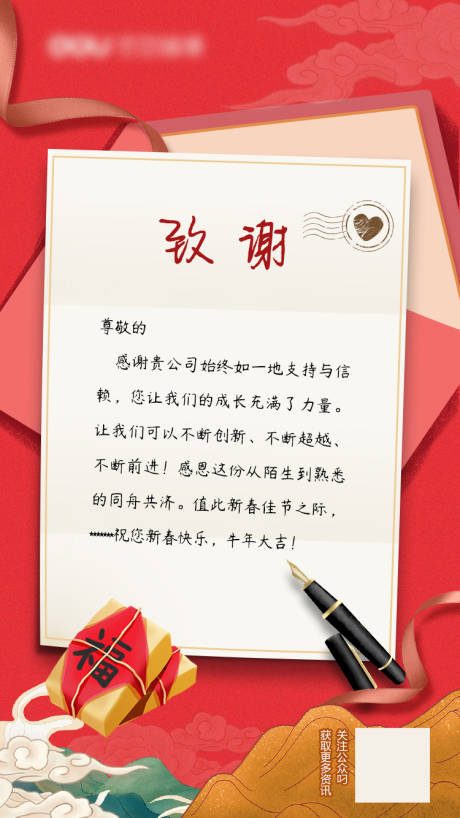 致谢
尊敬的
感谢贵公司始终如一地支持与信
赖，您让我们的成长充满了力量。
让我们可以不断创新、不断超越、
不断前进！感恩这份从陌生到熟悉
的同舟共济。值此新春佳节之际，
*******祝您新春快乐，牛年大吉！
福
关注公众号
获取更多资讯